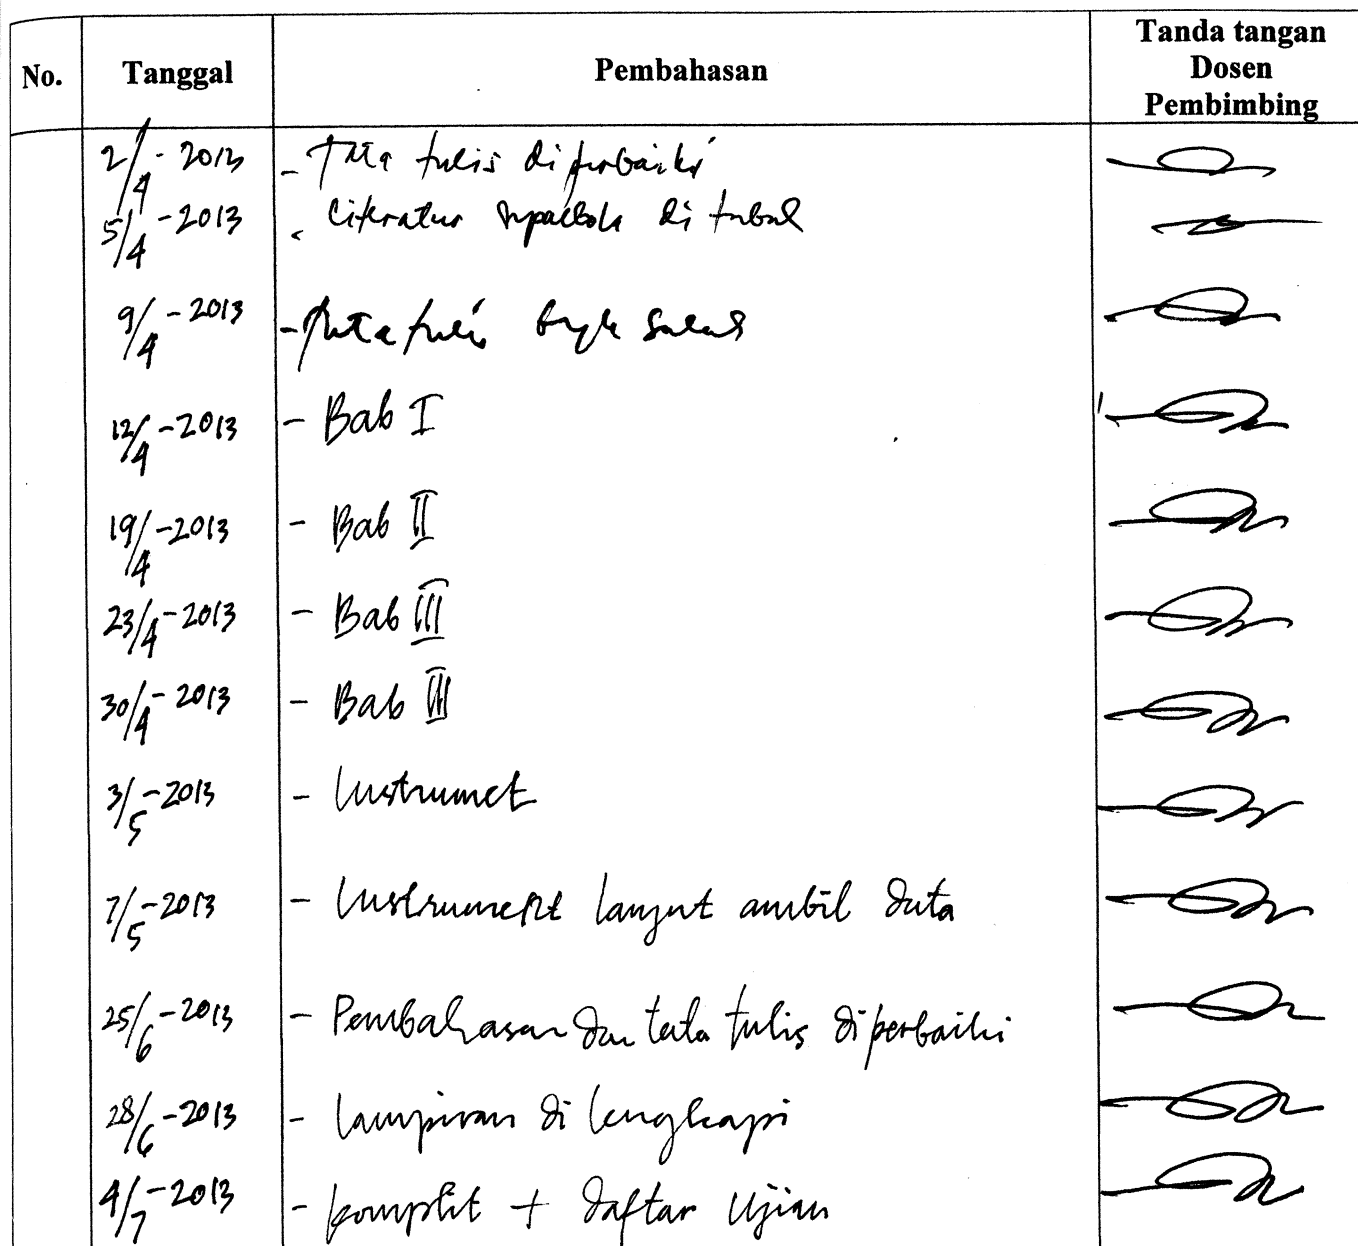 No.
Tanggal
Pembahasan
Tanda tangan
Dosen
Pembimbing
2/4 - 2013 - Tata tulis diperbaiki
5/4 - 2013 - Literatur di tubuh
9/4 - 2013 - Tata tulis salah
12/4 - 2013 - Bab I
19/4 - 2013 - Bab II
23/4 - 2013 - Bab III
30/4 - 2013 - Bab III
3/5 - 2013 - Instrumet
7/5 - 2013 - Instrument lanjut ambil data
25/6 - 2013 - Pembahasan dan tata tulis diperbaiki
28/6 - 2013 - Lampiran di lengkapi
4/7 - 2013 - komplit + daftar Ujian